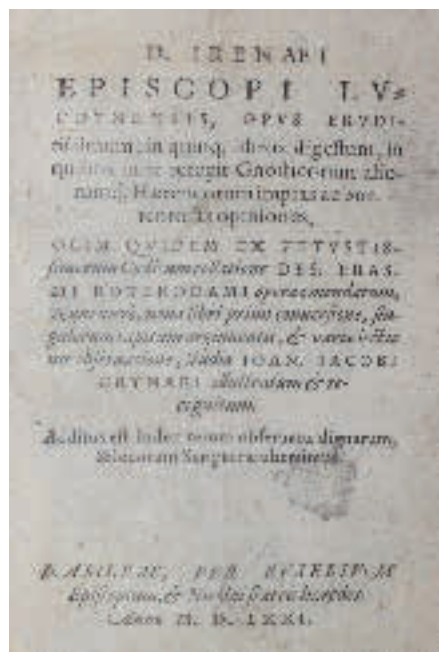 D. IRENAEI
EPISCOPI LV=
GDVNENSIS, OPVS ERVDI-
tissimum, in quinq; libros digestum, in
quibus mire retegit Gnosticorum
Haereticorum impias ac
opiniones,
OLIM QVIDEM EX VETVSTIS-
simorum Codicum collatione DES. ERAS-
MI ROTERODAMI opera emendatum,
nunc vero, noua libri primi conuersione, sin-
gulorum capitum argumentis, & varia lectio
nis obseruatione, studio IOAN. IACOBI
GRYNAEI illustratum & re-
cognitum.
Additus est Index rerum obseruatu dignarum,
& locorum Scripturae
BASILEAE, PER EVSEBIVM
Episcopium, & Nicolai fratris heredes.
Anno M. D. LXXI.